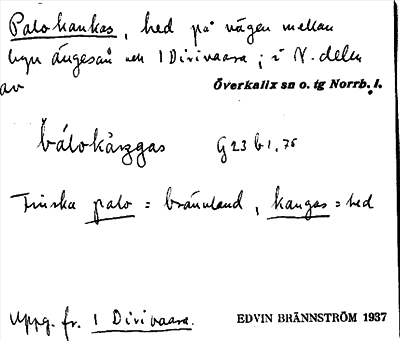 Palokankas, hed på vägen mellan
byn Ängeså och 1 Dirivaara; i N. delen
av Överkalix sn o. tg Norrb. l.
bálokàŋgas G23 b1, 76
Finska palo = bränland, kangas = hed
Uppg. fr. 1 Dirivaara. EDVIN BRÄNNSTRÖM 1937